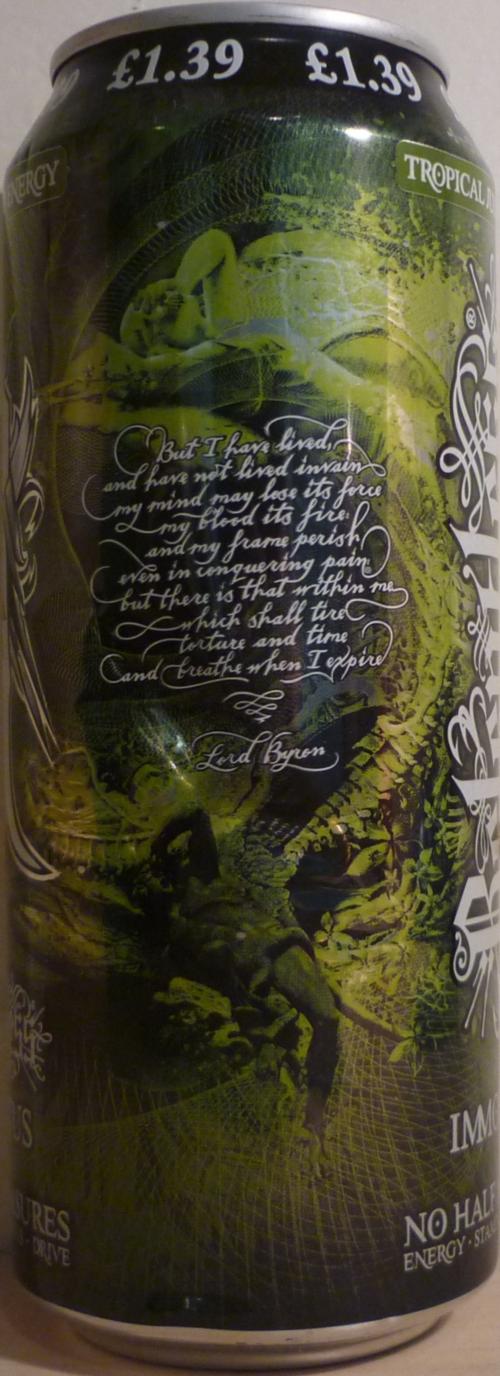 £1.39 £1.39
ENERGY
TROPICAL
But I have lived,
and have not lived in vain
my mind may lose its force
my blood its fire
and my frame perish
even in conquering pain
but there is that within me
which shall tire
torture and time
and breathe when I expire
Lord Byron
NO HALF
ENERGY
DRIVE